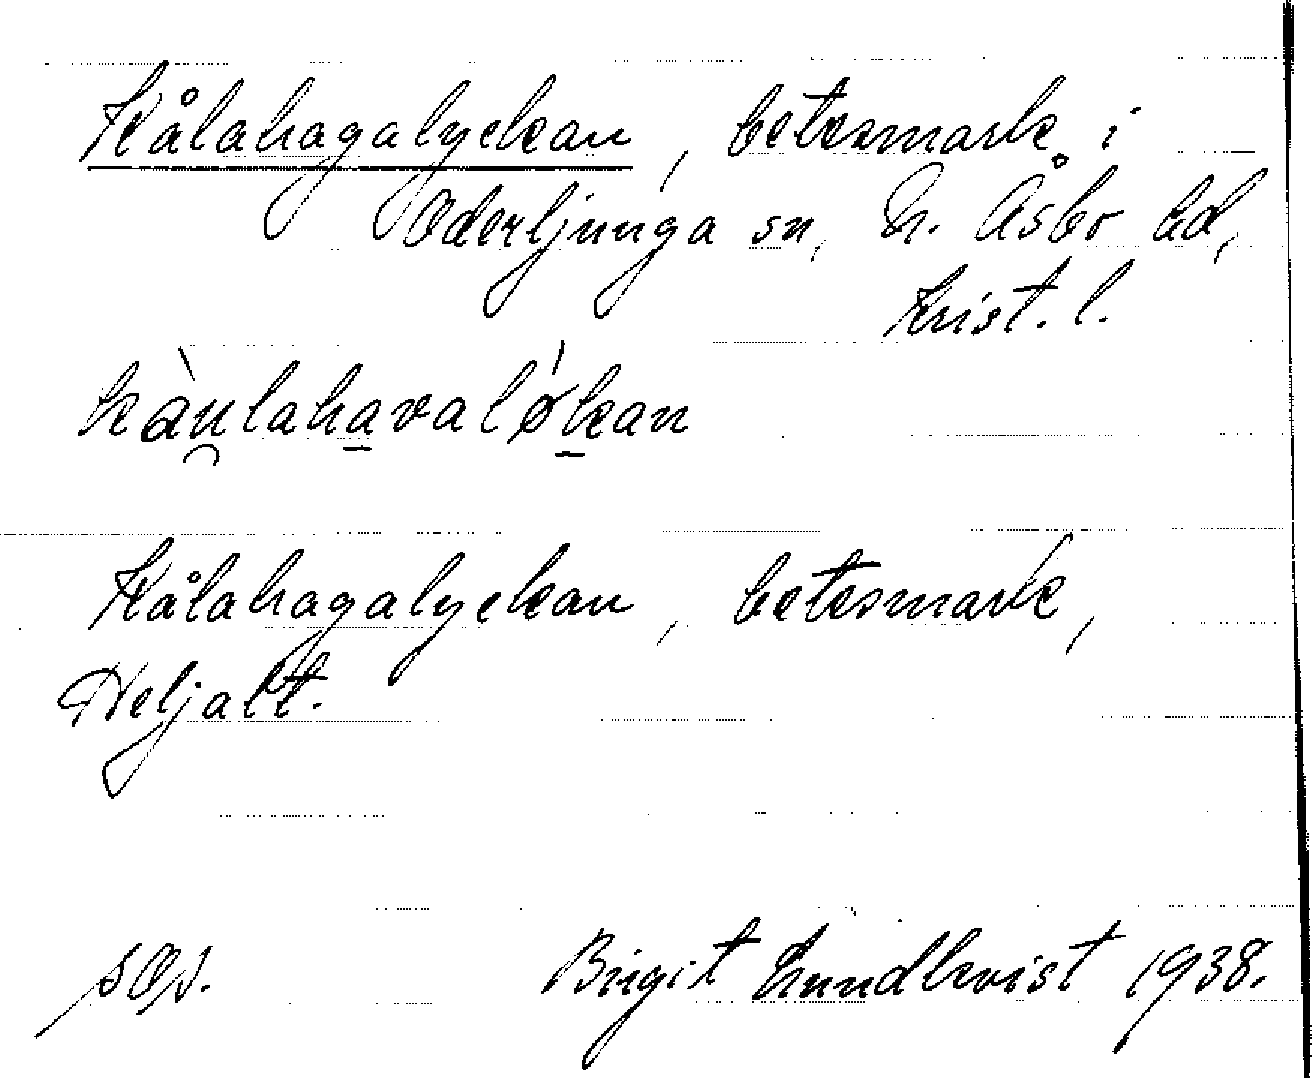 Kålahagalyckan, betesmark i
Oderljunga sn, N. Åsbo hd,
Krist. l.
kàu̯lahavaløkan
Kålahagalyckan, betesmark,
Heljalt.
Birgit Lundkvist 1938.